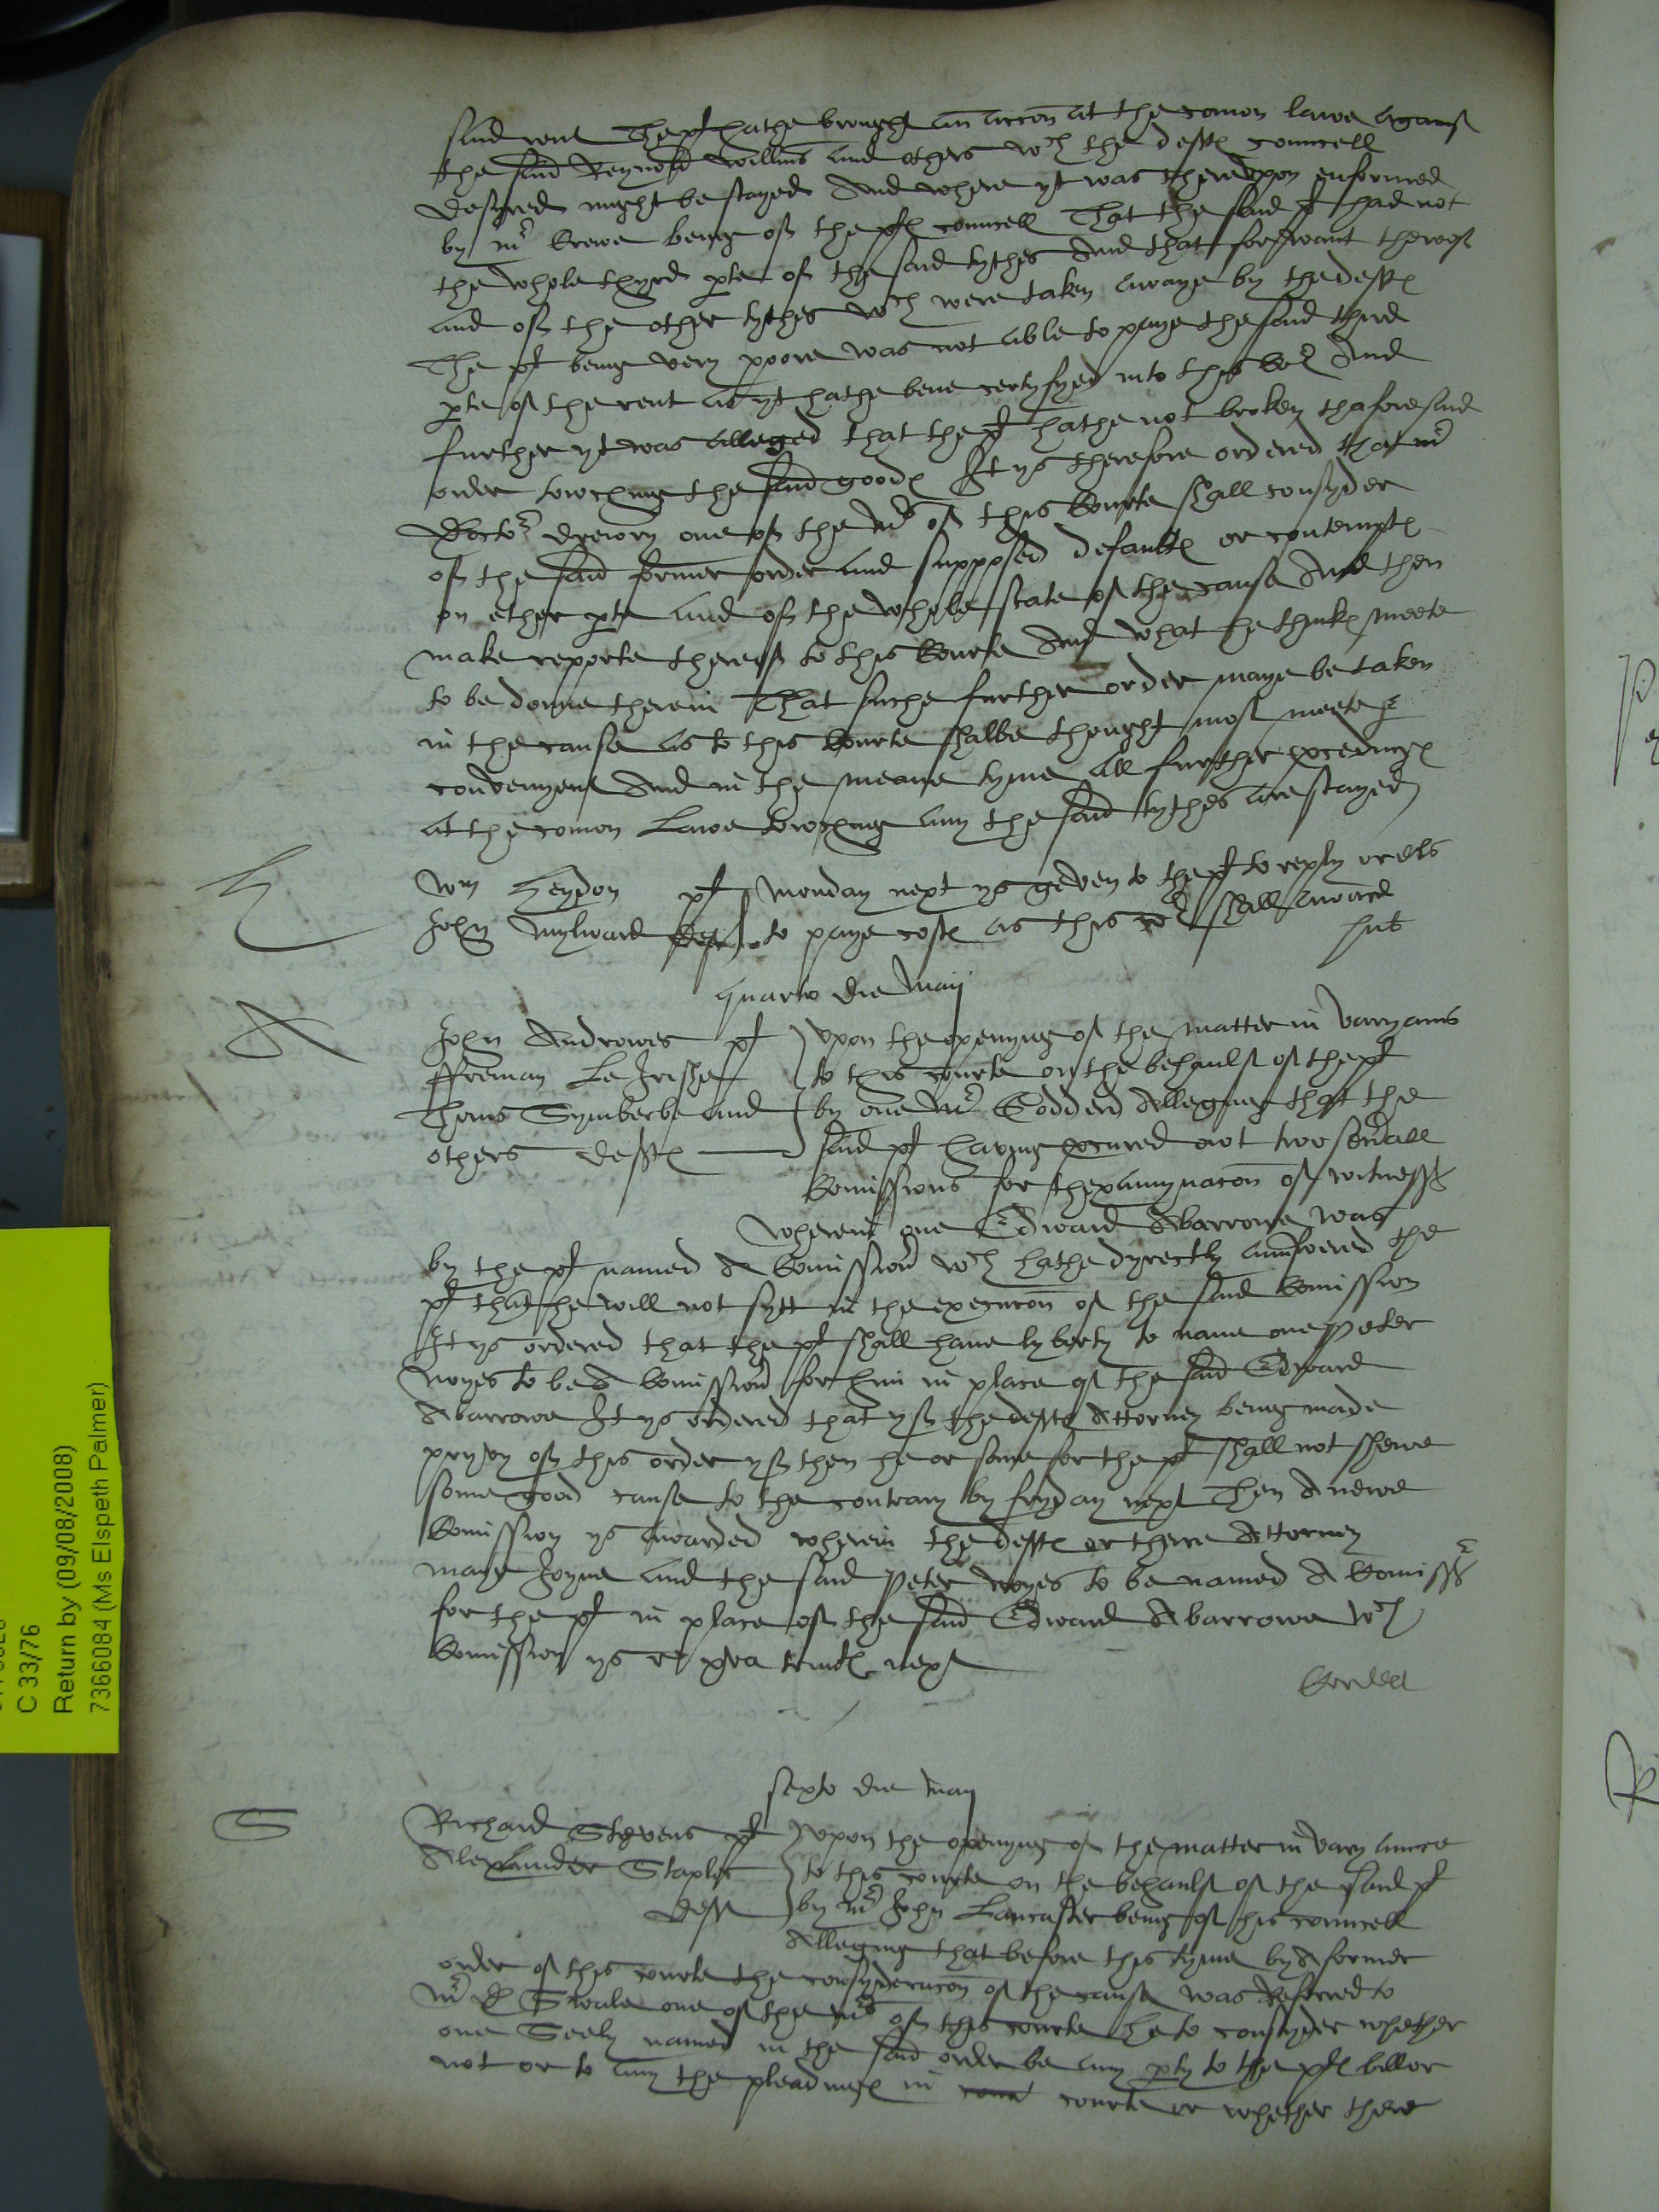 said rent The plt hathe brought an accon at the comon lawe against
the said Reynold Willms and others wch the defts councell
desyred might be stayed And where yt was thereupon enformed
by mr being of the plts councell That the said plt had not
the whole thyrd pte of the said tythes And that for want therof
and of the other tythes wch were taken awaye by the defts
The plt being very poore was not able to paye the said third
pte of the rent as yt hathe bene certyfyed into this Cort And
further yt was alleged that the plt hathe not broken thaforesaid
order towching the said goods It ys therefore ordered that mr
Doctor Drewry one of the mrs of this Courte shall consyder
of the said former order and supposed defaults or contempts
on ether pte and of the whole state of the cause And then
make reporte thereof to this Courte And what he thinks meete
to be donne therein That suche further order maye be taken
in the cause as to this Courte shalbe thought most meete &
convenyent And in the meane tyme all further procedings
at the comon Lawe towching any the said tythes are stayed
H
Wm Heydon plt Monday next ys geven to the plt to reply or els
John Mylward deft to paye costs as this cort shall award
quarto die Maij
A
John Androwes plt Upon the openyng of the matter in varyaunce
ffreman to this courte on the behaulf of the plt
Thoms Symberbe and by one mr Godderd Alleging that the
others defts said plt having procured owt two severall
Comissions for thexamynacon of witnesses
wherein one Edward Abarrowe was
by the plt named A Comissionr wch hathe dyrectly aunswered the
plt that he will not sytt in the execucon of the said Comission
It ys ordered that the plt shall have lyberty to name one Peter
Noyes to be A Comissionr for him in place of the said Edward
Abarrowe It ys ordered that yf the defts Attorney being made
pryvy of this order yf then he or some for the plt shall not shewe
some good cause to the contrary by fryday next Then A newe
Comission ys awarded wherein the defts or there Attorney
maye Joyne and the said Peter Noyes to be named A Comissr
for the plt in place of the said Edward Abarrowe wch
Comission ys re xna trinits next
Cordell
sexto die Maij
S
Richard Stevens plt Upon the openyng of the matter in varyaunce
Alexander Staples to this courte on the behaulf of the said plt
deft by mr John Lancaster being of his councell
Alleging that before this tyme by A former
order of this courte the consyderacon of the cause was Referred to
mr D Swale one of the mrs of this courte he to consyder whether
one Seely named in the said order be any pty to the plts bill or
not or to any the pleadings in courte or whether there
C 33/76
Return by (09/08/2008)
7366084 (Ms Elspeth Palmer)